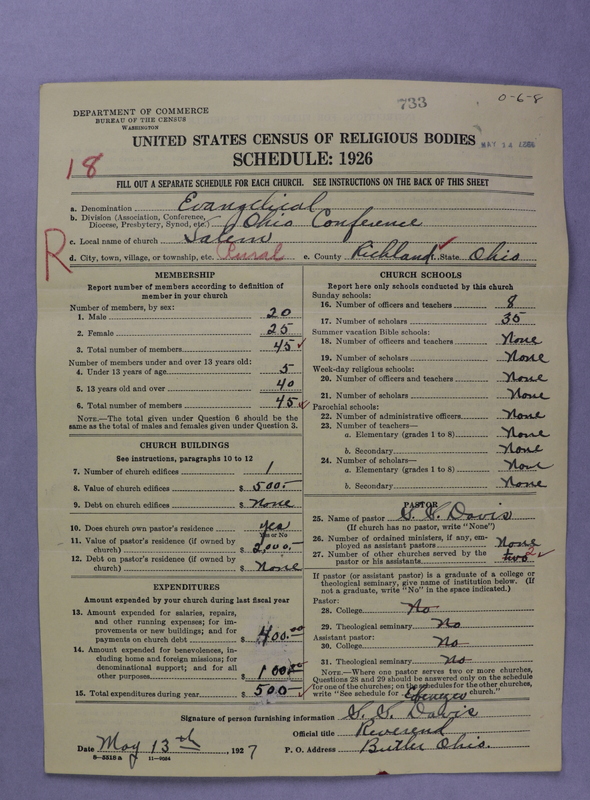 733
0-6-8
DEPARTMENT OF COMMERCE
BUREAU OF THE CENSUS
WASHINGTON
UNITED STATES CENSUS OF RELIGIOUS BODIES
MAY 14
SCHEDULE: 1926
18
FILL OUT A SEPARATE SCHEDULE FOR EACH CHURCH. SEE INSTRUCTIONS ON THE BACK OF THIS SHEET
a. Denomination Evangelical
b. Division (Association, Conference, Diocese, Presbytery, Synod, etc.) Ohio Conference
c. Local name of church Salem
R
d. City, town, village, or township, etc. Rural e. County Richland State Ohio
MEMBERSHIP
Report number of members according to definition of
member in your church
Number of members, by sex:
1. Male 20
2. Female 25
3. Total number of members 45
Number of members under and over 13 years old:
4. Under 13 years of age 5
5. 13 years old and over 40
6. Total number of members 45
NOTE.—The total given under Question 6 should be the
same as the total of males and females given under Question 3.
CHURCH BUILDINGS
See instructions, paragraphs 10 to 12
7. Number of church edifices 1
8. Value of church edifices $ 500.-
9. Debt on church edifices $ None
10. Does church own pastor's residence? yes
Yes or No
11. Value of pastor's residence (if owned by
church) $ 2,000.-
12. Debt on pastor's residence (if owned by
church) $ None
EXPENDITURES
Amount expended by your church during last fiscal year
13. Amount expended for salaries, repairs,
and other running expenses; for im-
provements or new buildings; and for
payments on church debt $ 400.00
14. Amount expended for benevolences, in-
cluding home and foreign missions; for
denominational support; and for all
other purposes $ 100.00
15. Total expenditures during year $ 500-
CHURCH SCHOOLS
Report here only schools conducted by this church
Sunday schools:
16. Number of officers and teachers 8
17. Number of scholars 35
Summer vacation Bible schools:
18. Number of officers and teachers None
19. Number of scholars None
Week-day religious schools:
20. Number of officers and teachers None
21. Number of scholars None
Parochial schools:
22. Number of administrative officers None
23. Number of teachers—
a. Elementary (grades 1 to 8) None
b. Secondary None
24. Number of scholars—
a. Elementary (grades 1 to 8) None
b. Secondary None
PASTOR
25. Name of pastor Davis
(If church has no pastor, write "None")
26. Number of ordained ministers, if any, em-
ployed as assistant pastors None
27. Number of other churches served by the
pastor or his assistants two 2
If pastor (or assistant pastor) is a graduate of a college or
theological seminary, give name of institution below. (If
not a graduate, write "No" in the space indicated.)
Pastor:
28. College No
29. Theological seminary No
Assistant pastor:
30. College No
31. Theological seminary No
NOTE.—Where one pastor serves two or more churches,
Questions 28 and 29 should be answered only on the schedule
for one of the churches; on the schedules for the other churches,
write "See schedule for Ebenezer church."
Signature of person furnishing information Davis
Official title Reverend
Date May 13th, 1927 P. O. Address Butler Ohio.
8-5313 a 11-9034